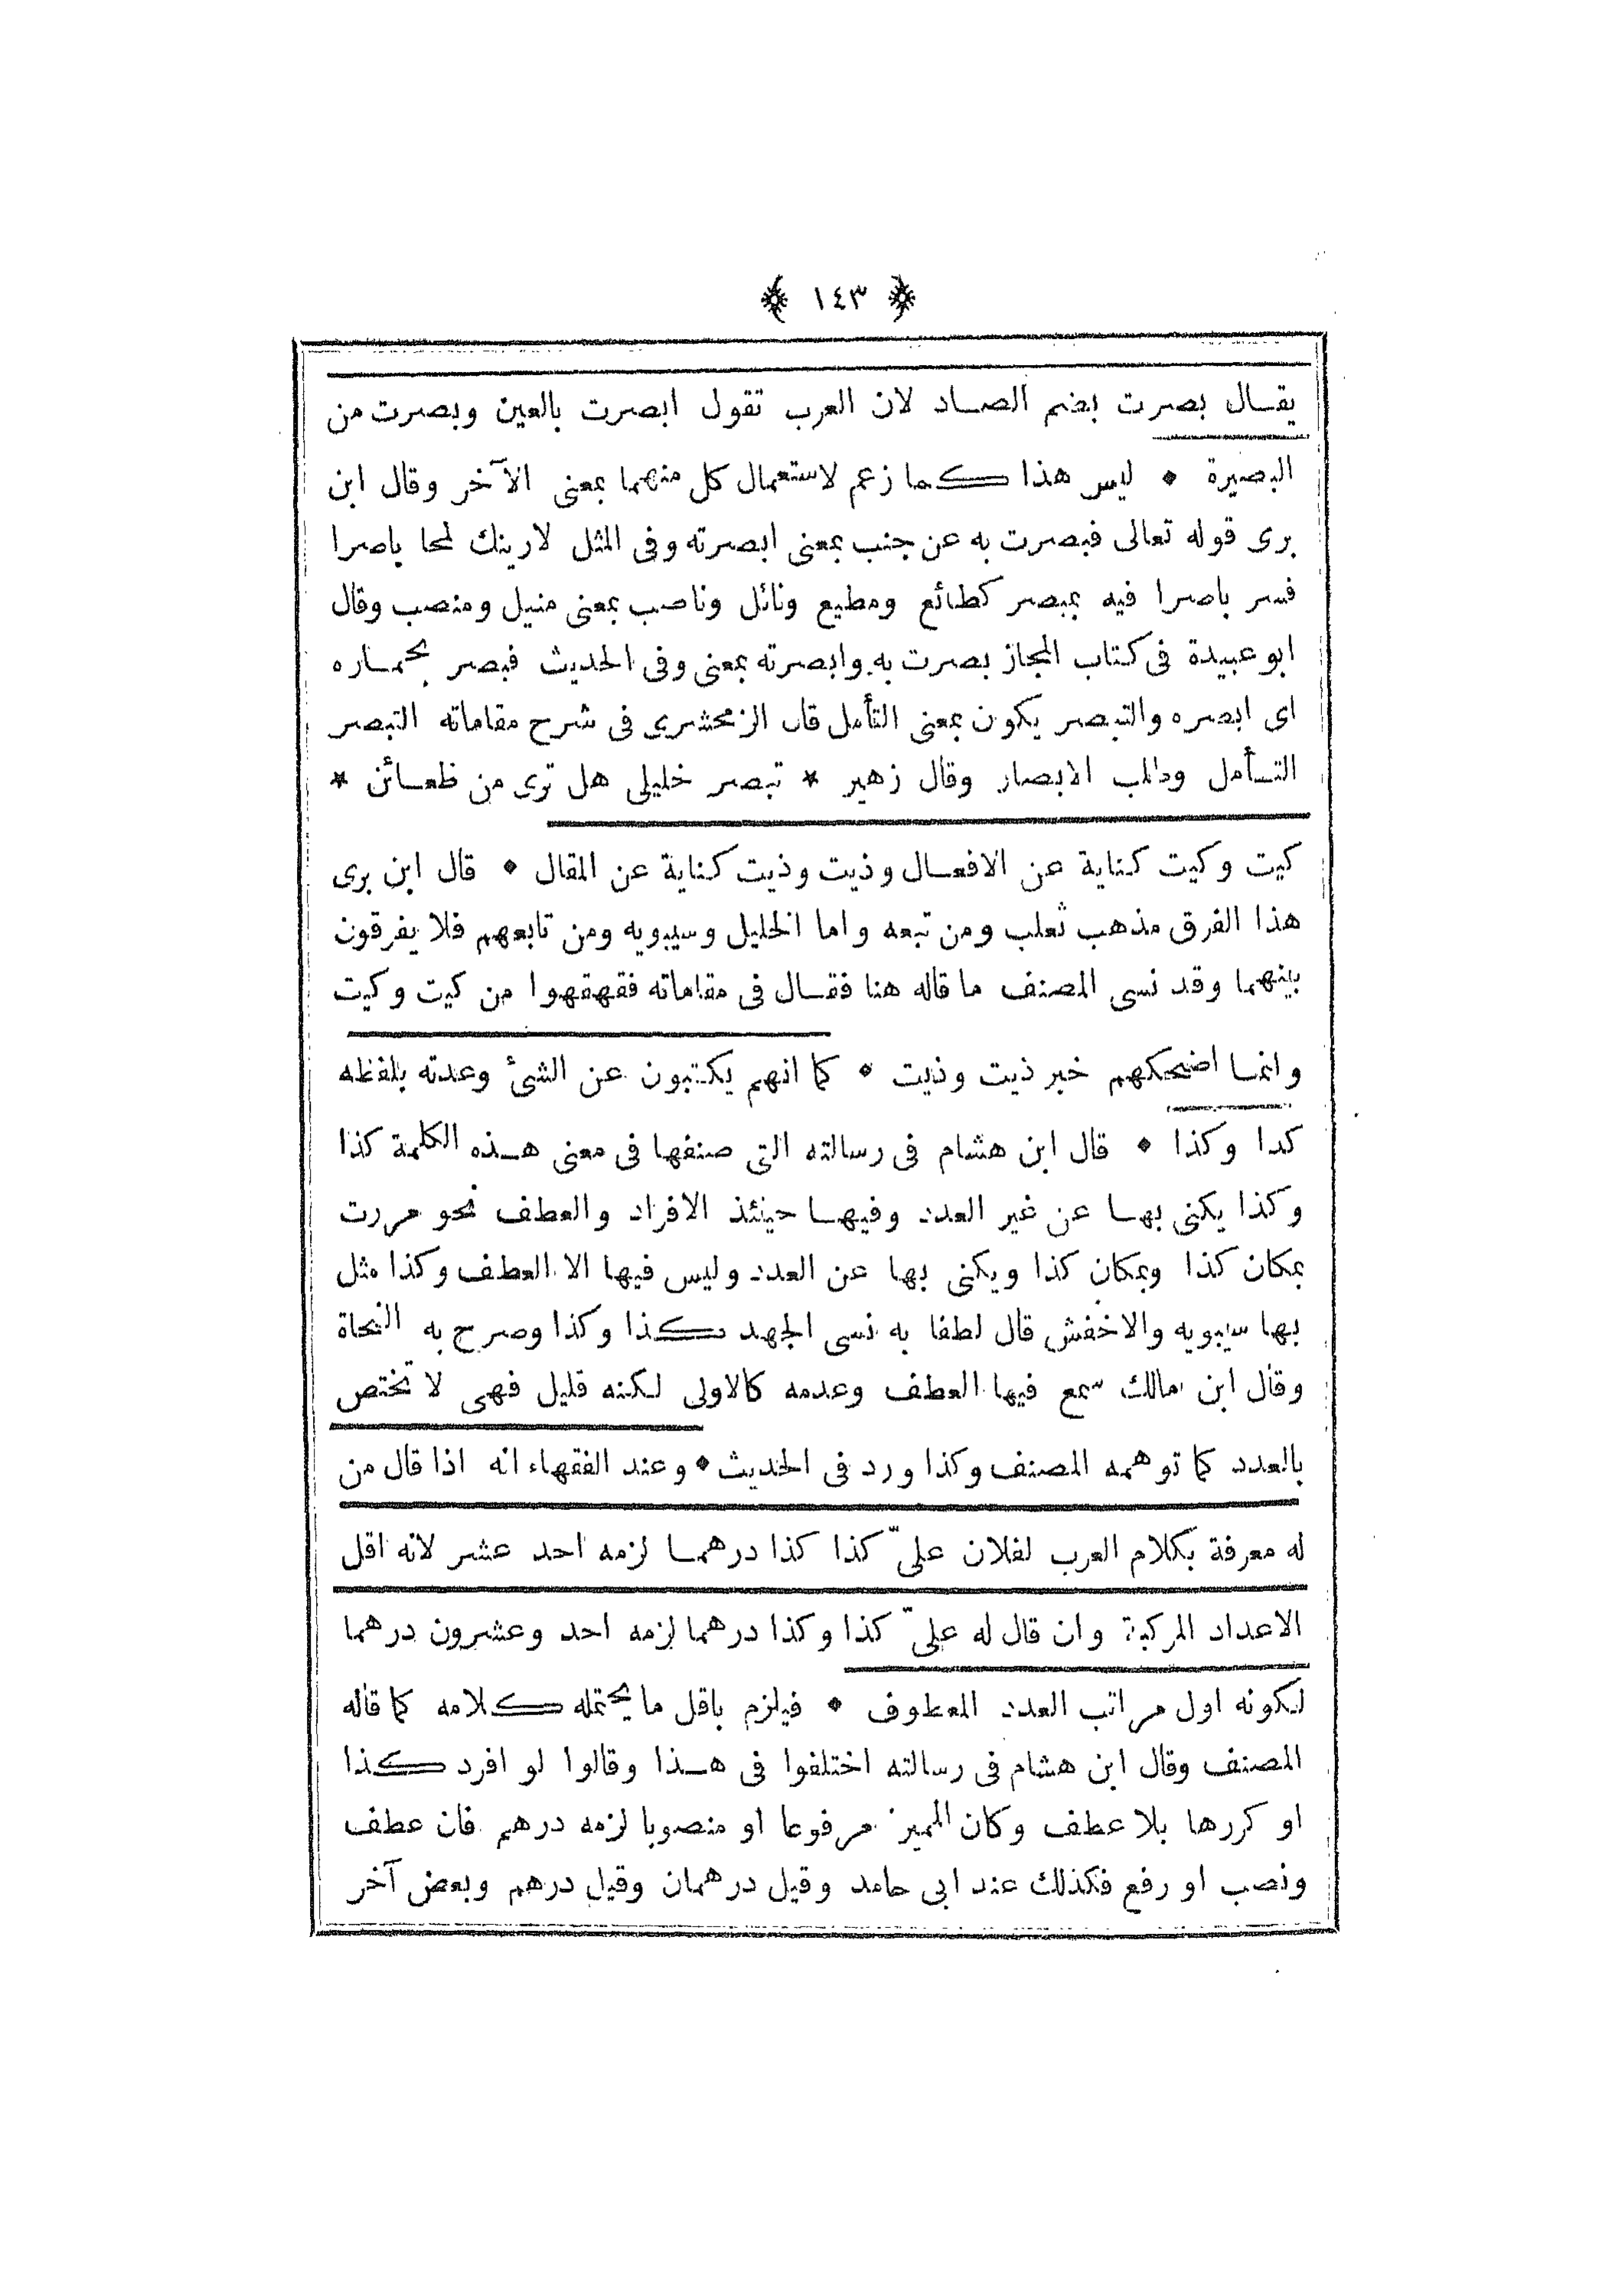 ﴿ ١٤٣ ﴾
يقـال بصرت بضم الصـاد لان العرب تقول ابصرت بالعين وبصرت من
البصيرة * ليس هذا كما زعم لاستعمال كل منهما بمعنى الآخر وقال ابن
برى قوله تعالى فبصرت به عن جنب بمعنى ابصرته وفى المثل لارينك لمحا باصرا
فسر باصرا فيه بمبصر كطائع ومطيع ونائل وناصب بمعنى منيل ومنصب وقال
ابو عبيدة فى كتاب المجاز بصرت به وابصرته بمعنى وفى الحديث فبصر بحمـاره
اى ابصره والتبصر يكون بمعنى التأمل قال الزمخشرى فى شرح مقاماته التبصر
التـأمل وطلب الابصار وقال زهير * تبصر خليلى هل ترى من ظعـائن *
كيت وكيت كناية عن الافعـال وذيت وذيت كناية عن المقال * قال ابن برى
هذا الفرق مذهب ثعلب ومن تبعه واما الخليل وسيبويه ومن تابعهم فلا يفرقون
بينهما وقد نسى المصنف ما قاله هنا فقـال فى مقاماته فقهقهوا من كيت وكيت
وانمـا اضحكهم خبر ذيت وذيت * كما انهم يكتبون عن الشئ وعدته بلفظه
كدا وكذا * قال ابن هشام فى رسالته التى صنفها فى معنى هـذه الكلمة كذا
وكذا يكنى بهـا عن غير العدد وفيهـا حينئذ الافراد والعطف نحو مررت
بمكان كذا وبمكان كذا ويكنى بها عن العدد وليس فيها الا العطف وكذا مثل
بها سيبويه والاخفش قال لطفا به نسى الجهد كذا وكذا وصرح به النحاة
وقال ابن مالك سمع فيها العطف وعدمه كالاولى لكنه قليل فهى لا تختص
بالعدد كما توهمه المصنف وكذا ورد فى الحديث * وعند الفقهاء انه اذا قال من
له معرفة بكلام العرب لفلان علىّ كذا كذا درهمـا لزمه احد عشر لانه اقل
الاعداد المركبة وان قال له علىّ كذا وكذا درهما لزمه احد وعشرون درهما
لكونه اول مراتب العدد المعطوف * فيلزم باقل ما يحتمله كلامه كما قاله
المصنف وقال ابن هشام فى رسالته اختلفوا فى هـذا وقالوا لو افرد كذا
او كررها بلا عطف وكان المميز مرفوعا او منصوبا لزمه درهم فان عطف
ونصب او رفع فكذلك عند ابى حامد وقيل درهمان وقيل درهم وبعض آخر